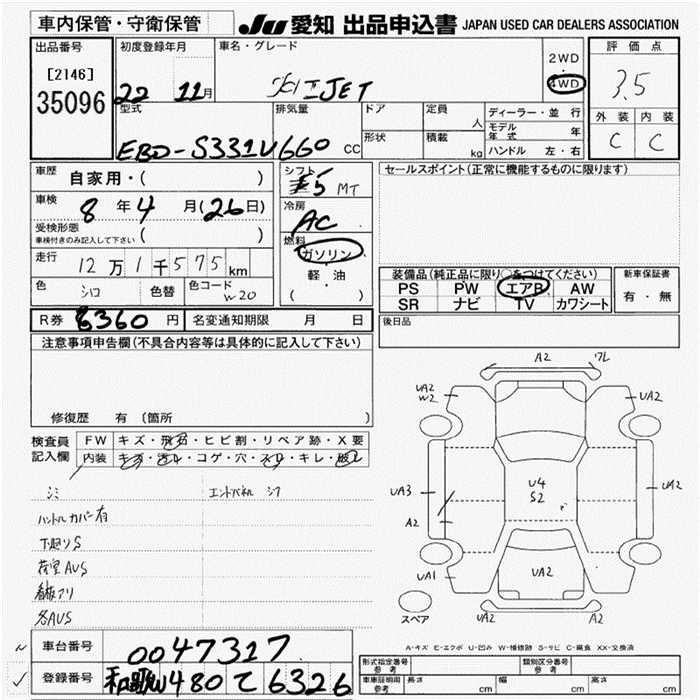 車内保管・守衛保管
JU 愛知 出品申込書 JAPAN USED CAR DEALERS ASSOCIATION
出品番号
[2146]
35096
初度登録年月
22 11月
車名・グレード
JET
2WD
・
4WD
評価点
3.5
外装 内装
C C
型式
EBD-S331V
排気量
660 CC
ドア
形状
定員
人
積載
kg
ディーラー・並行
モデル年式 年
ハンドル 左・右
車歴
自家用・( )
車検
8年4月(26日)
受検形態
車検付きのみ記入して下さい ( )
走行
12万1千575km
色
シロ
色替
色コード
W20
シフト
5 MT
冷房
AC
燃料
ガソリン
軽・油
( )
セールスポイント(正常に機能するものに限ります)
装備品(純正品に限り○をつけてください)
PS PW エアB AW
SR ナビ TV カワシート
新車保証書
有・無
R券 8360円
名変通知期限 月 日
後日品
注意事項申告欄(不具合内容等は具体的に記入して下さい)
修復歴 有 〔箇所 〕
検査員記入欄
FW キズ・飛石・ヒビ割・リペア跡・X要
内装 キズ・汚レ・コゲ・穴・スレ・キレ・破レ
シミ
エンドパネル
ハンドルカバー有
下廻りS
荷室AUS
各AUS
A2
UA2
W2
UA2
UA3
A2
U4
S2
UA2
UA1
UA2
UA2
A2
スペア
A-キズ E-エクボ U-凹み W-補修跡 S-サビ C-腐食 XX-交換済
車台番号
0047317
登録番号
和歌山480て6326
形式指定番号
参考
類別区分番号
参考
車庫証明用
参考
長さ cm
幅 cm
高さ cm